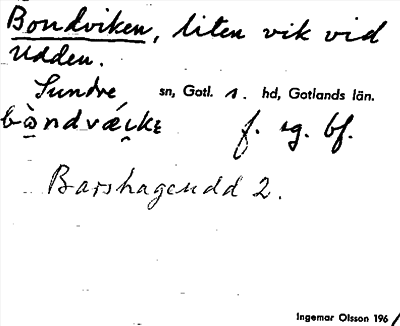 Bondviken, liten vik vid
udden.
Sundre sn, Gotl. s. hd, Gotlands län.
f. sg. bf.
Barshageudd 2.
Ingemar Olsson 196/